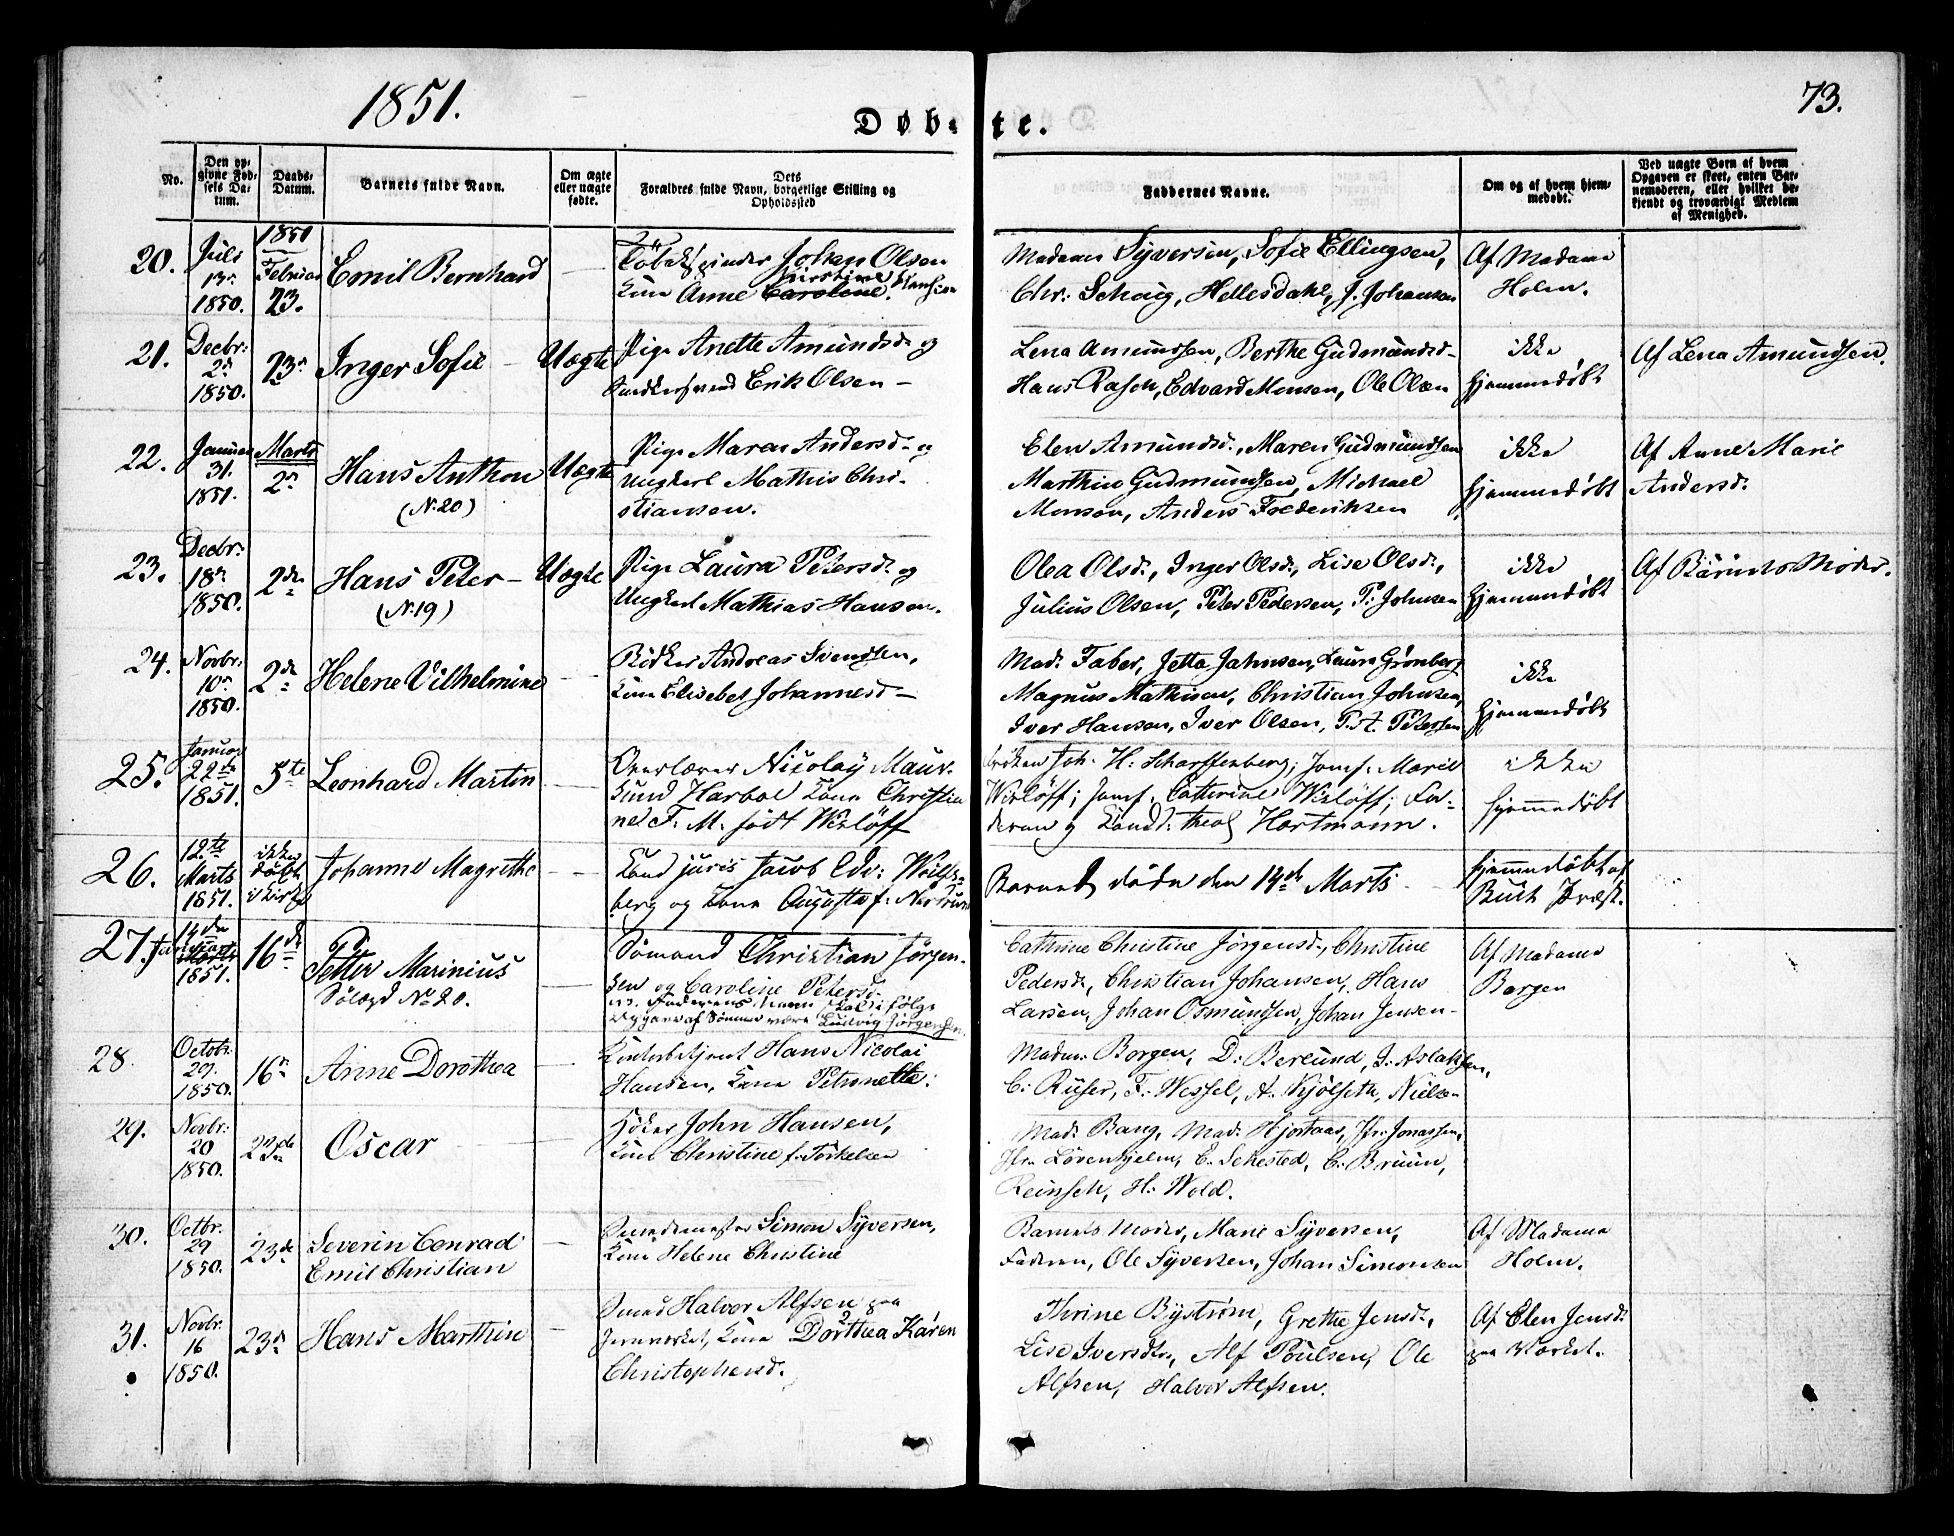 1851.
73.
Døbte.
No.
Den opgivne Fødsels Datum.
Daabs-Datum.
Barnets fulde Navn.
Om ægte eller uægte fødte.
Dets Forældres fulde Navn, borgerlige Stilling og Opholdssted
Faddernes Navne.
Om og af hvem hjemmedøbt.
Ved uægte Børn af hvem Opgaven er skeet, enten Barnemoderen, eller hvilket bekjendt og troværdigt Medlem af Menighed.
20.
Juli
13n
1850.
1851
Februar
23.
Emil Bernhard
Johan Olsen
Kone Anne Caroline. Kirstine Hansen
Madam Syversen, Sofie Ellingsen,
Chr: Schoug, Hellesdahl, J. Johansen
Af Madame
Holm.
21.
Decbr:
2n
1850.
23n
Inger Sofie
Uægte
Pige Anette Amundsd. og
Erik Olsen
Lena Amundsen, Berthe Gudmundsd.
Hans Rasch, Edvard Monsen, Ole Olsen
ikke
hjemmedøbt
Af Lena Amundsen.
22.
Januar
31.
1851.
Marts
2n
Hans Anthon
(N. 20)
Uægte
Pige Maren Andersd. og
Ungkarl Mathis Chri-
stiansen.
Elen Amundsd., Maren Gudmundsen
Marthin Gudmundsen, Michael
Monsen, Anders Frederiksen
ikke
hjemmedøbt
Af Anne Marie
Andersd.
23.
Decbr:
18n
1850.
2den
Hans Peter
(N. 19)
Uægte
Pige Laura Petersd. og
Ungkarl Mathias Hansen.
Olea Olsd., Inger Olsd., Lise Olsd.,
Julius Olsen, Peter Pedersen, P. Johnsen
ikke
hjemmedøbt
Af Barnets Moder.
24.
Novbr:
10n
1850.
2de
Helene Vilhelmine
Bødker Andreas Svendsen,
Kone Elisabet Johannesd.
Mad. Faber, Jetta Jahnsen, Laura Grønberg
Magnus Mathisen, Christian Johnsen,
Iver Hansen, Iver Olsen, P. A. Petersen
ikke
hjemmedøbt
25.
Januar
22de
1851.
5te
Leonhard Martin
Overlærer Nicolay Maur.
Lund Harboe Kone Christia
ne F. M. født Wisløff
Frøken Joh. H. Scharffenberg; Jomf. Marie
Wisløff; Jomf. Cathrine Wisløff; Fa-
deren og Kand. theol Hartmann.
ikke
hjemmedøbt
26.
12te
Marts
1851.
ikke
døbt
i Kirke
Johanne Magrethe
Kand juris Jacob Edv:
berg og Kone Augusta f.
Barnet døde den 14de Marts
hjemmedøbt af
Præst.
27.
14de
Januar
Marts
1851.
16de
Petter Marinius
N° 20.
Sømand Christian Jørgen-
sen og Caroline Petersd.
NB. Faderens Navn skal ifølge
Opgave af Sømand være Ludvig Jørgensen.
Cathrine Christine Jørgensd., Christine
Pedersd., Christian Johansen, Hans
Larsen, Johan Osmundsen, Johan Jensen
Af Madame
Borgen
28.
Octobr.
29.
1850.
16n
Anne Dorothea
Kontorbetjent Hans Nicolai
Hansen, Kone Petronelle.
Madm: Borgen, D: Berlund, J. Aslaksen,
C. Ruser, F. Wessel, A. Kjølseth, Nielsen
29.
Novbr:
20
1850.
23de
Oscar
Høker John Hansen,
Kone Christine f. Torkelsen
Mad. Bang, Mad. Hjortaas, Hr. Jonassen,
Hr. Løvenhjelm, E. Sehested, C. Bruun,
Reinsch, H. Wold.
30.
Octbr.
29
1850.
23de
Severin Conrad
Emil Christian
Simon Syversen,
Kone Helene Christine
Barnets Moder, Marie Syversen,
Faderen, Ole Syversen, Johan Simonsen
Af Madame
Holm.
31.
Novbr.
16
1850.
23n
Hans Marthin
Smed Halvor Alfsen paa
Jernverket, Kone Dorthea Karen
Christophersd.
Thrine Byström, Grethe Jensd.,
Lise Iversdtr., Alf Poulsen, Ole
Alfsen, Halvor Alfsen.
Af Elen Jensd.
paa Værket.